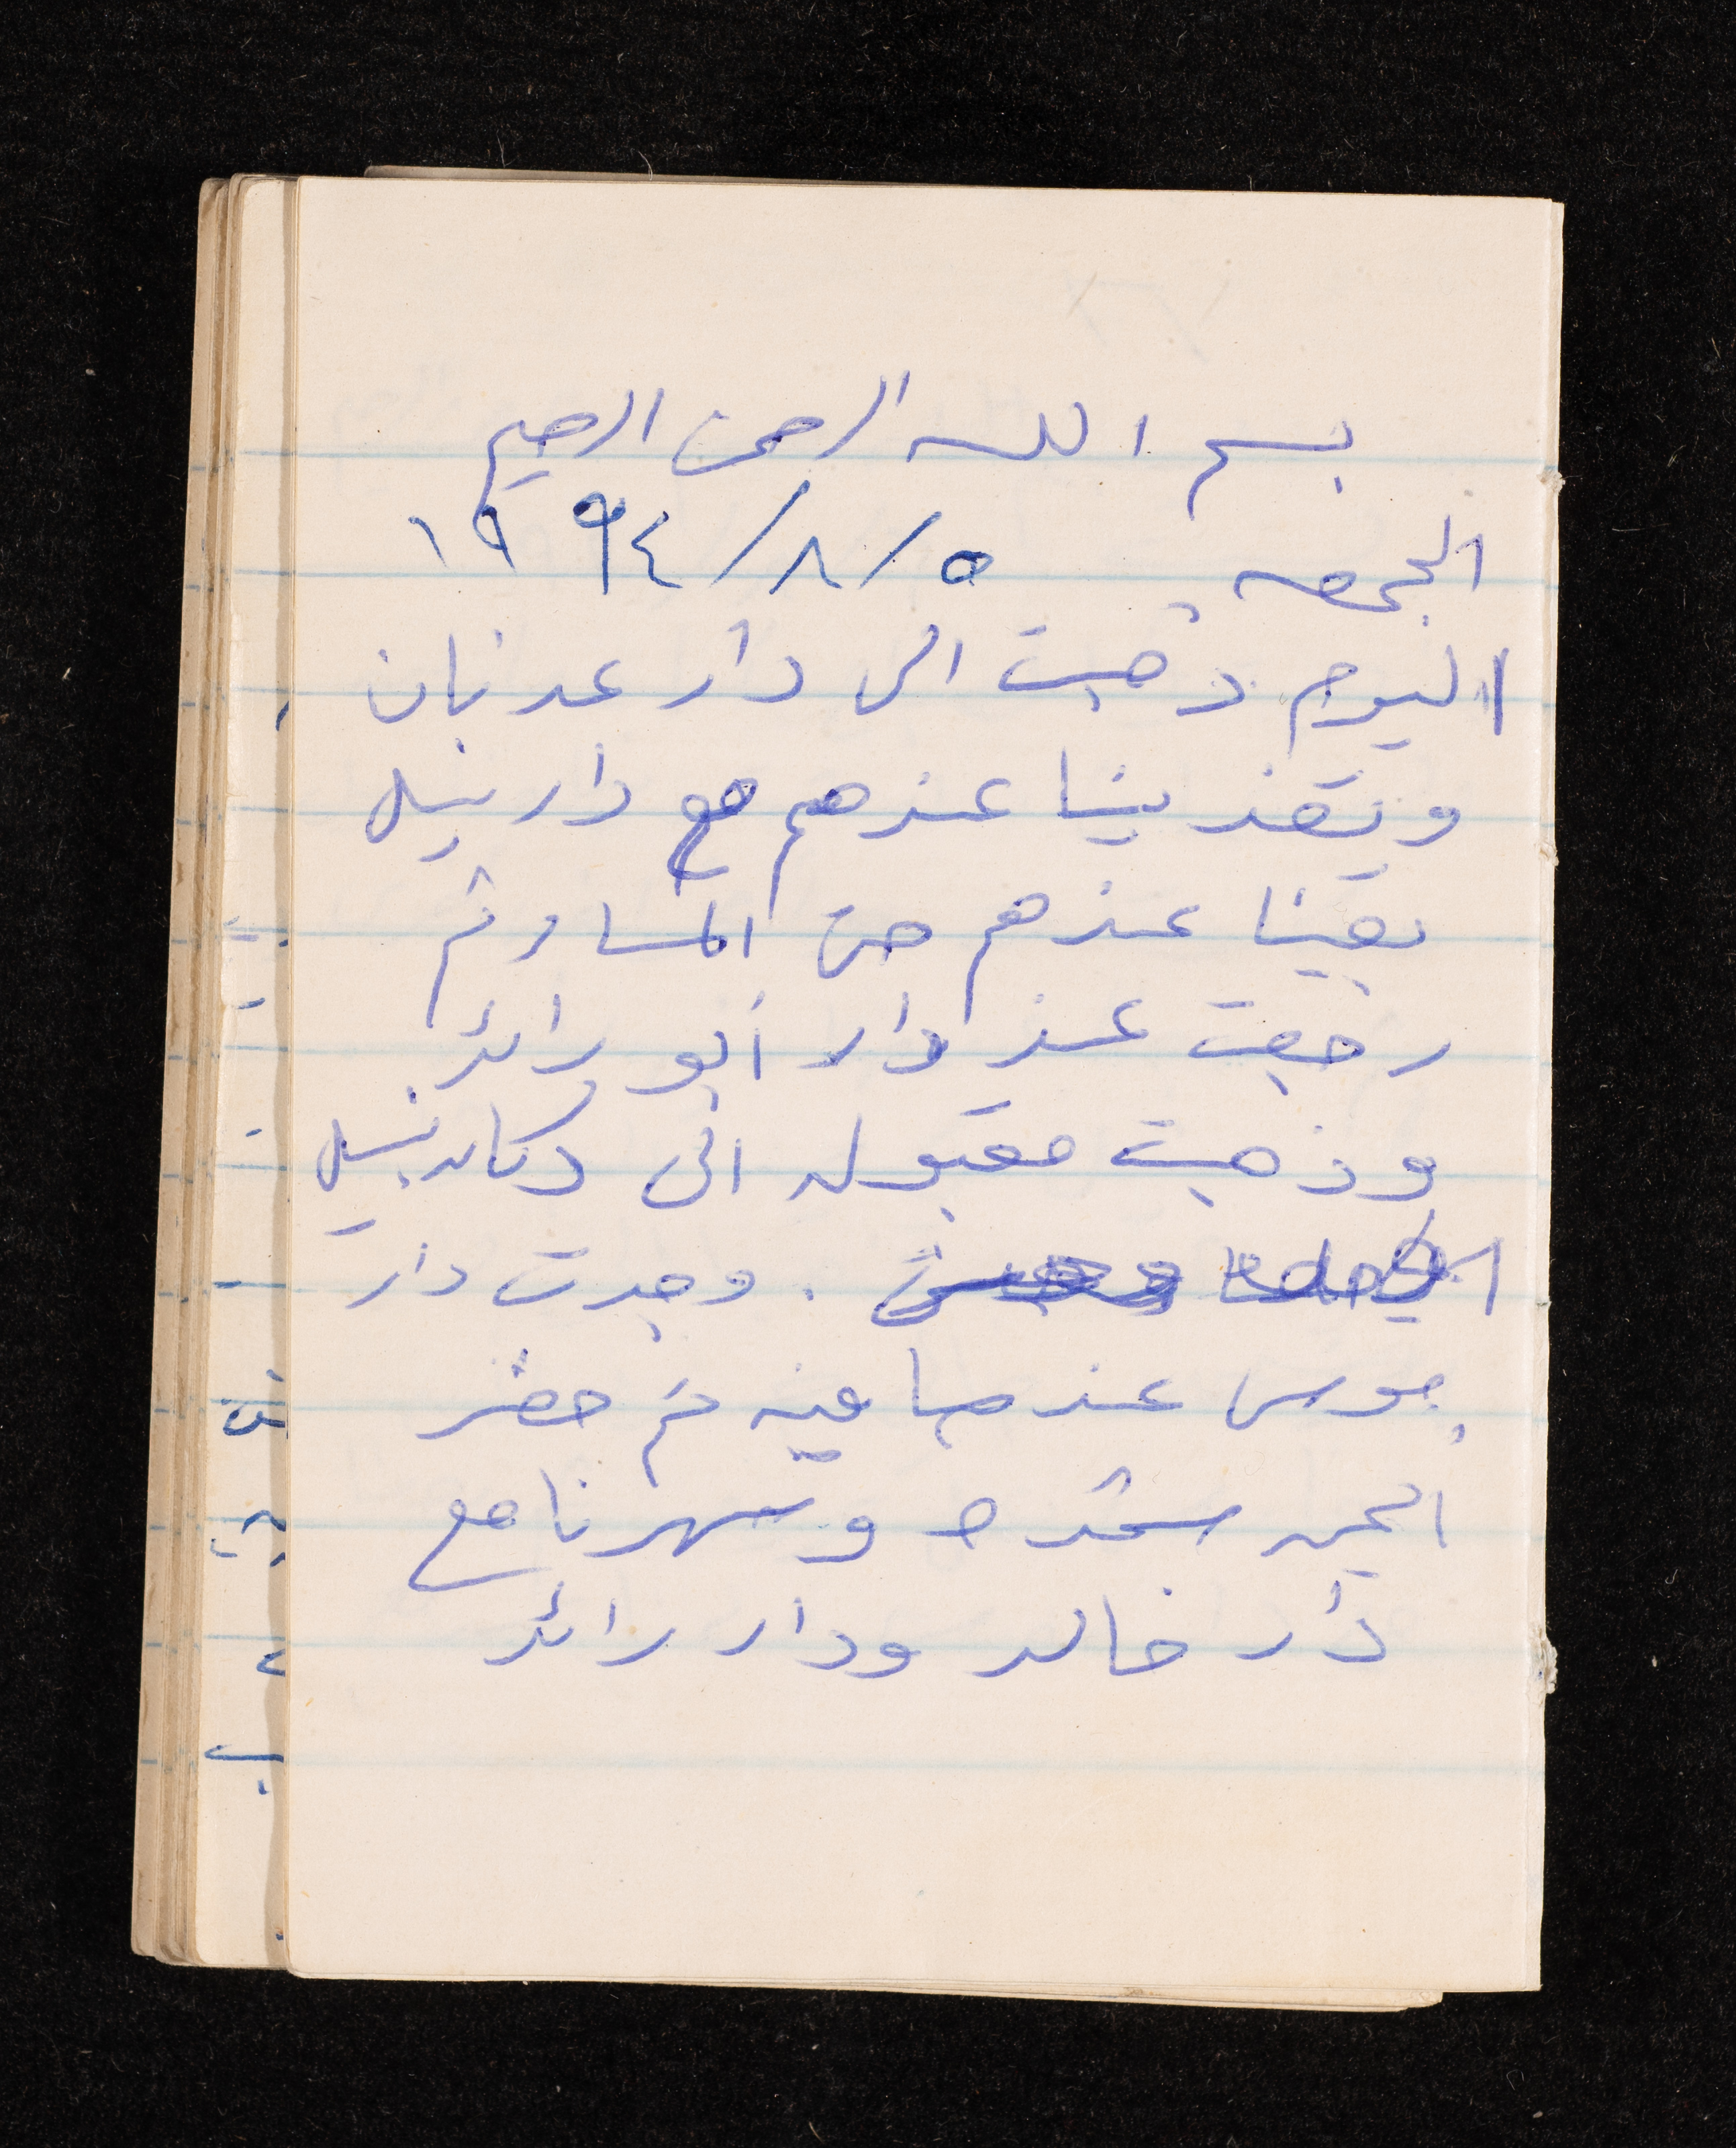 بسم الله الرحمن الرحيم
الجمعه ٥/٨/١٩٩٤
اليوم ذهبت الى دار عدنان
وتغذينا عندهم مع دار نبيل
بقينا عندهم حتى المسا وثم
رجعت عند دار أبو رائد
وذهبت مقبوله الى دكان نبيل
. وجدت دار
موسى عند صافيه ثم حضر
وسهرنا مع
دار خالد ودار رائد